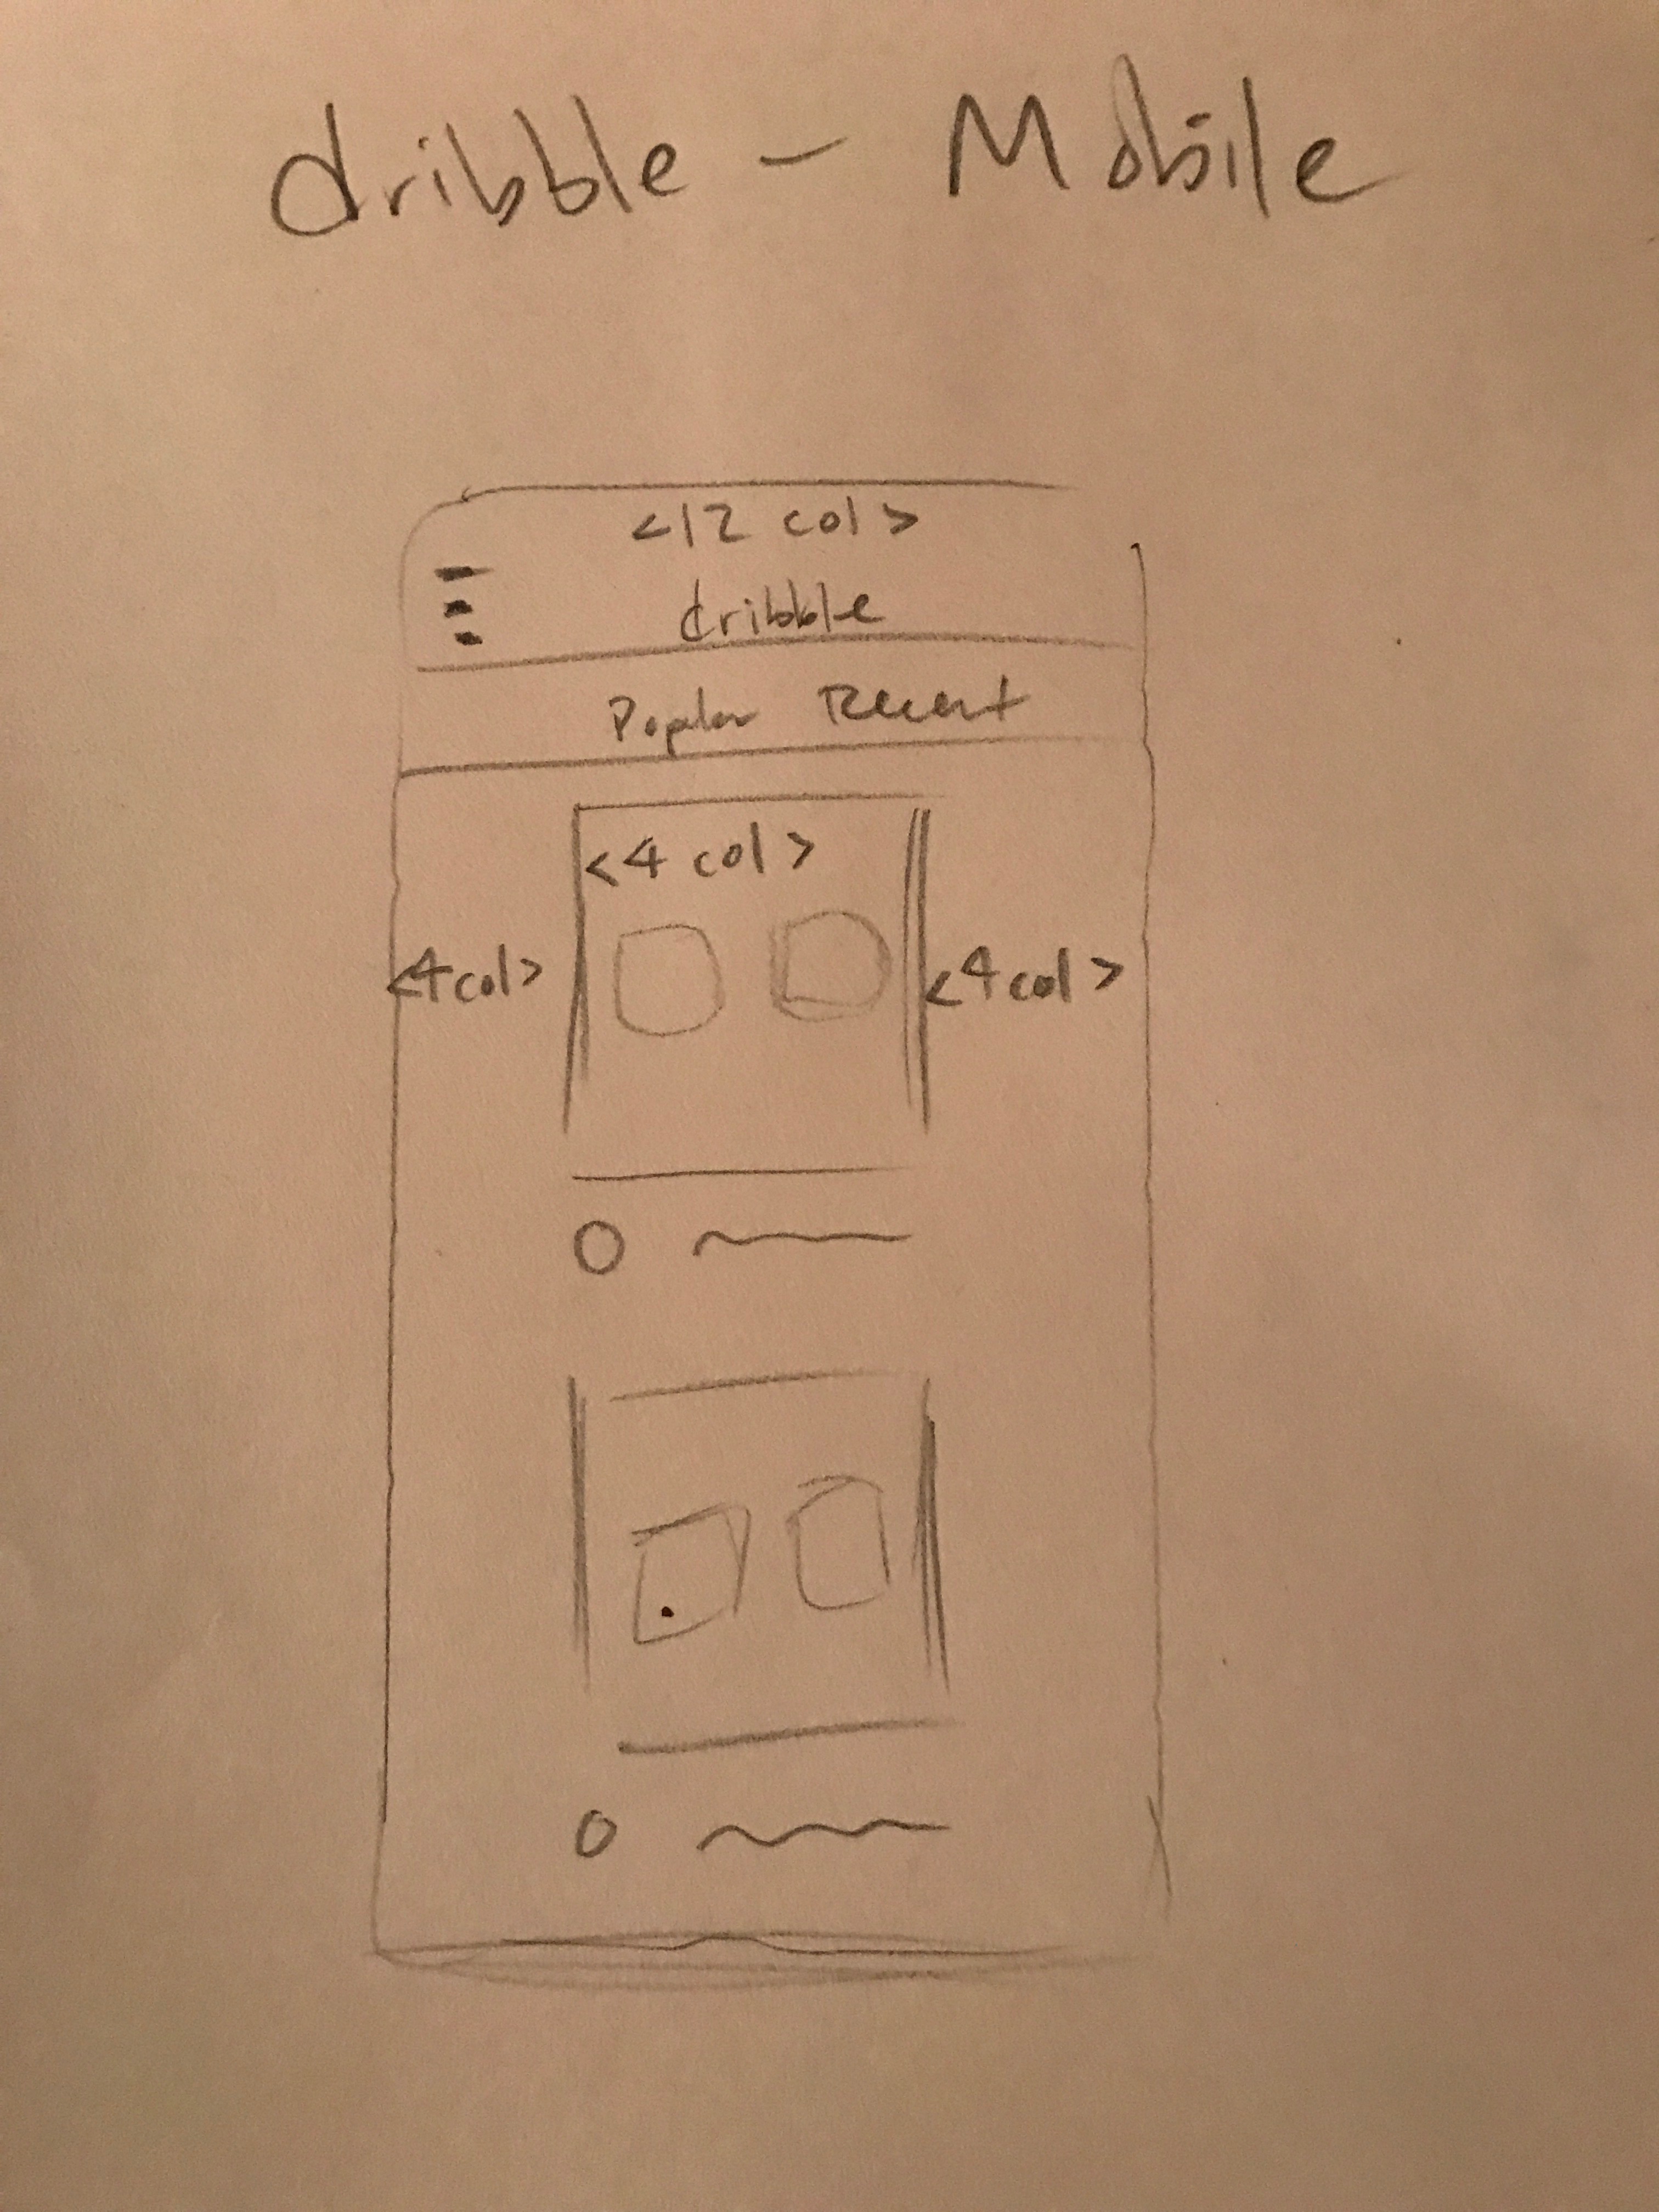 dribbble - Mobile
<12 col>
dribbble
Popular Recent
<4 col>
<4col> <4col>